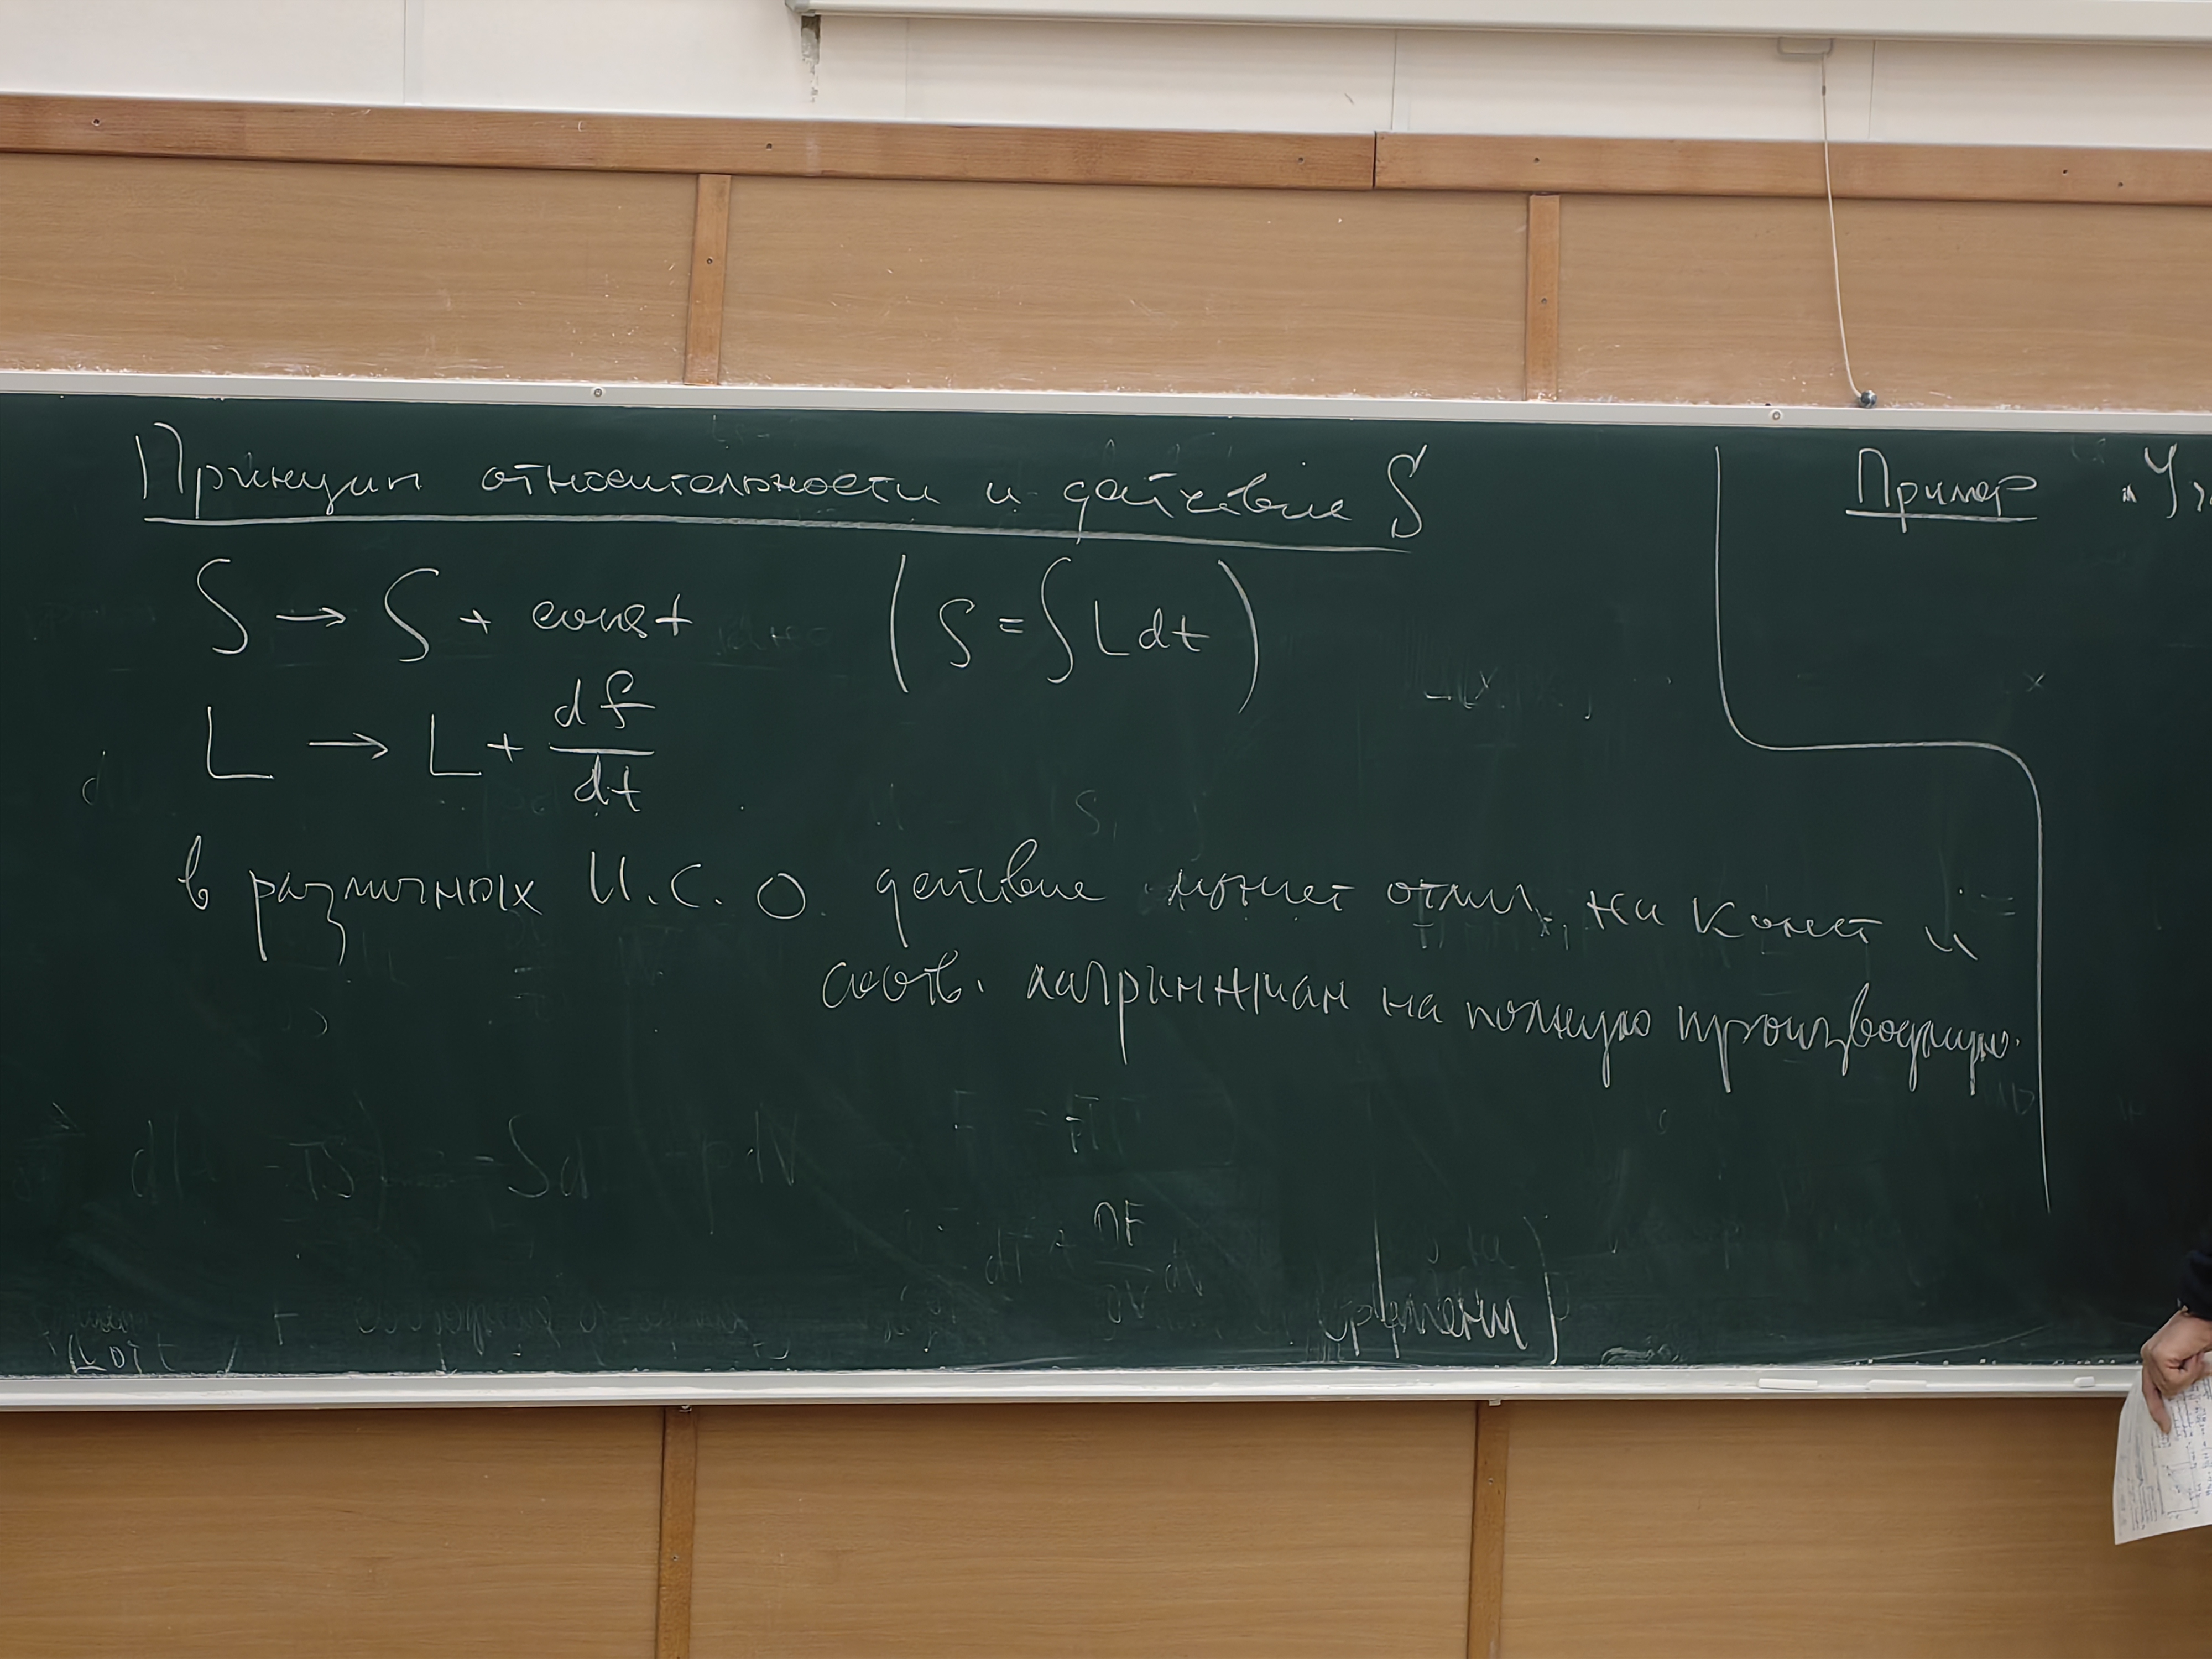 Принцип относительности и действие S
S → S + const (S = ∫ L dt)
L → L + df/dt
в различных И.С.О. действие может отлич. на конст и
соотв. лагранжиан на полную производную.
Пример
времени)